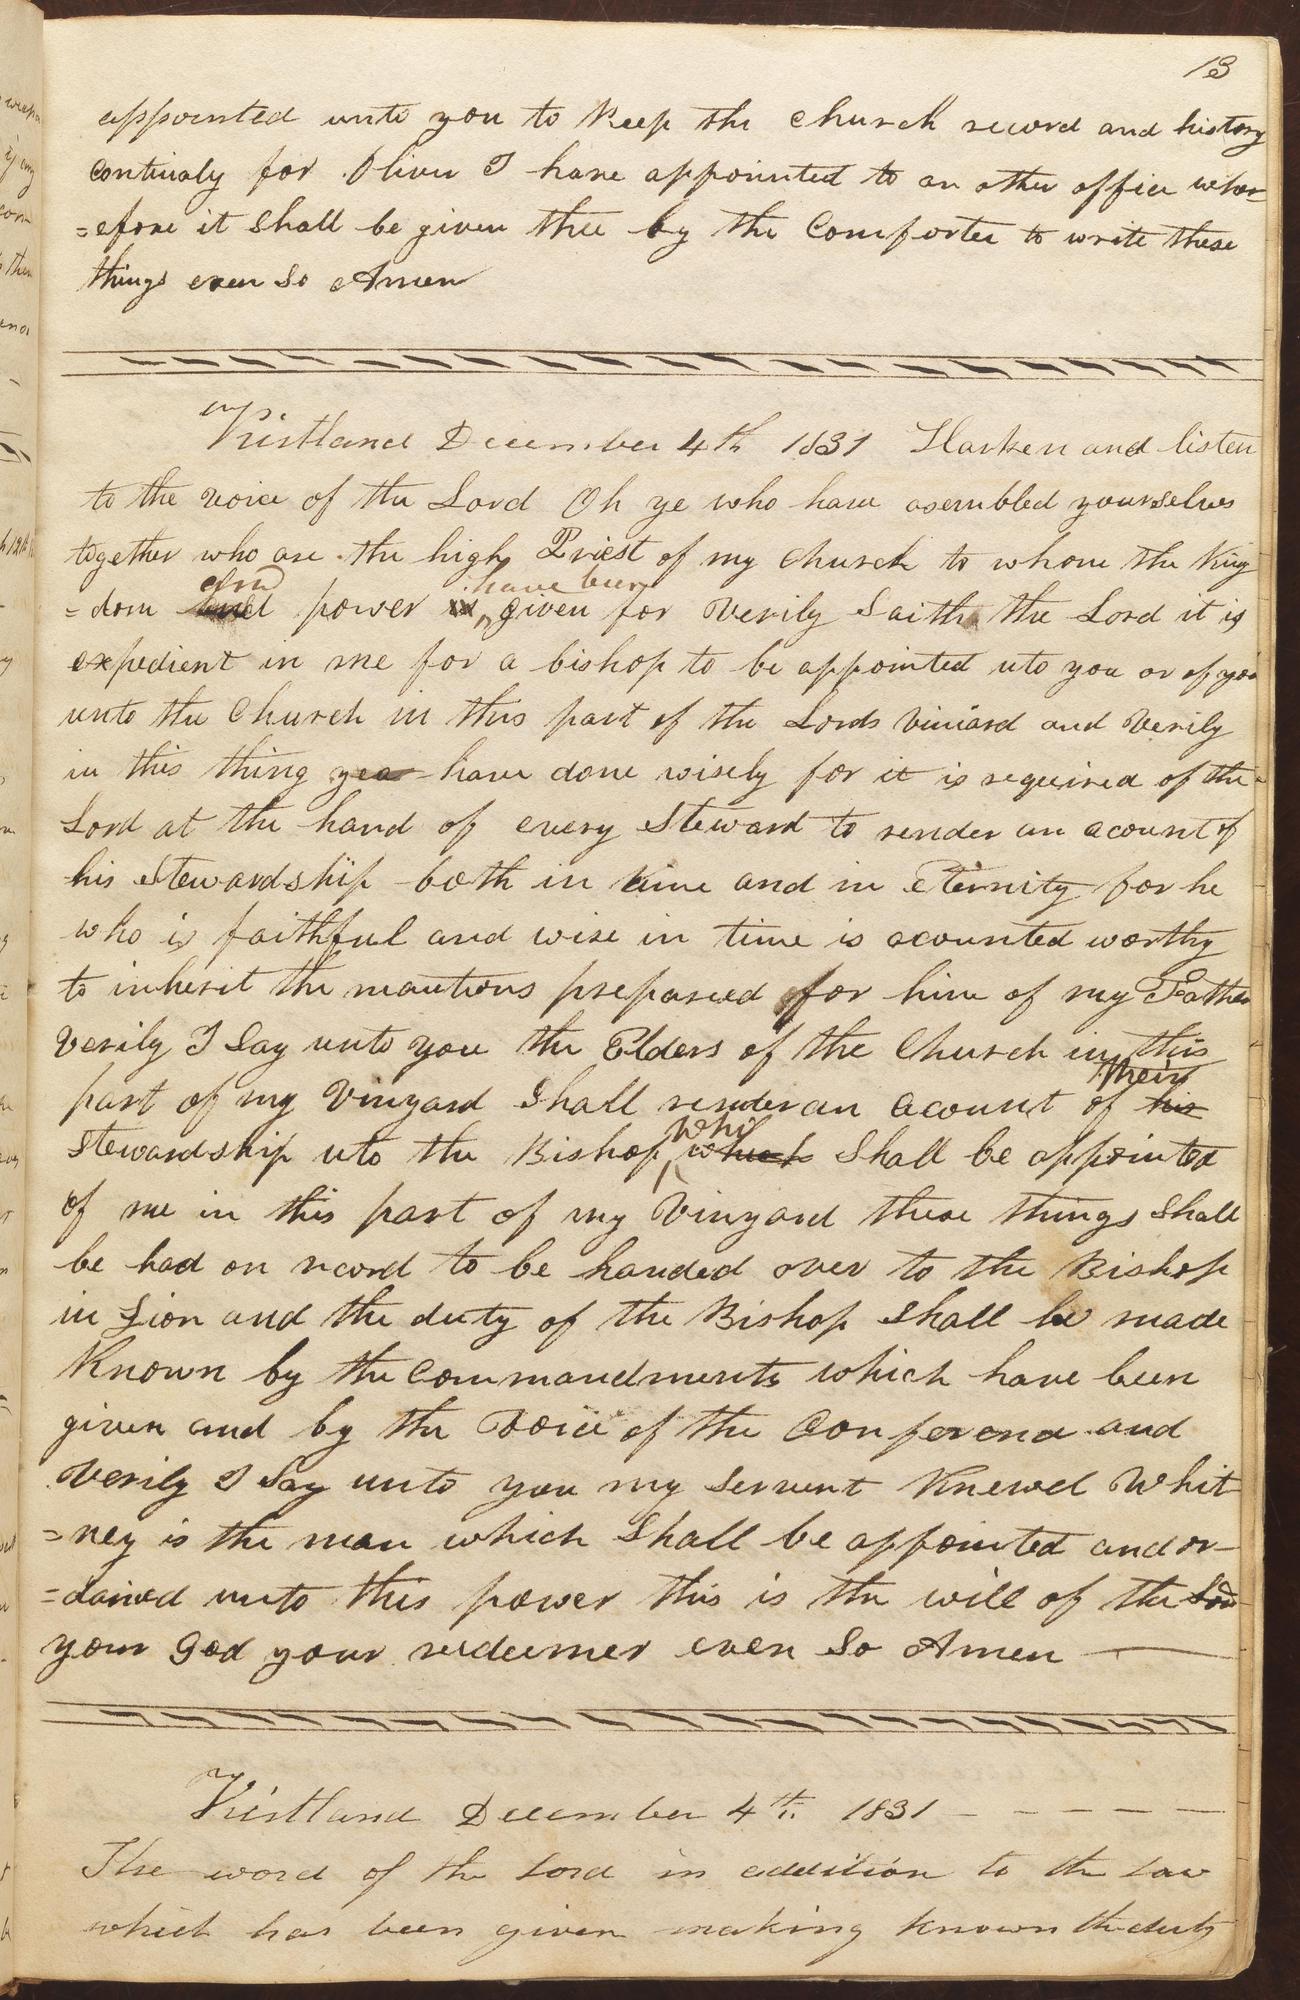 13
appointed unto you to Keep the church record and history
continualy for Oliver I have appointed to an other office wher
=efore it shall be given thee by the Comforter to write these
things even so Amen
Kirtland December 4th 1831 Harken and listen
to the voice of the Lord Oh ye who have asembled yourselves
together who are the high Priest of my church to whom the King
and have been
=dom power is given for verily Saith the Lord it is
expedient in me for a bishop to be appointed uto you or of you
unto the church in this part of the Lords viniard and verily
in this thing yea have done wisely for it is required of the
Lord at the hand of every Steward to render an acount of
his Stewardship both in time and in eternity for he
who is faithful and wise in time is acounted worthy
to inherit the mantions prepared for him of my Father
verily I Say unto you the Elders of the church in this
their
part of my vinyard Shall render an acount of his
who
stewardship uto the Bishop which Shall be appointed
of me in this part of my vinyard these things shall
be had on record to be handed over to the Bishop
in Zion and the duty of the Bishop Shall be made
Known by the commandments which have been
given and by the voice of the conference and
verily I Say unto you my servent Knewel Whit
=ney is the man which Shall be appointed and or-
=dained unto this power this is the will of the Lord
your God your redeemer even So Amen
Kirtland December 4th. 1831 - - - - -
The word of the Lord in addition to the law
which has been given making known the duty